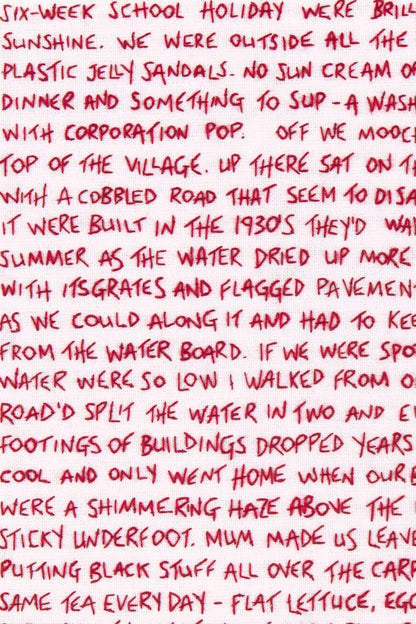 SIX-WEEK SCHOOL HOLIDAY WERE BRILL
SUNSHINE. WE WERE OUTSIDE ALL THE
PLASTIC JELLY SANDALS. NO SUN CREAM O
DINNER AND SOMETHING TO SUP - A WASH
WITH CORPORATION POP. OFF WE MOOC
TOP OF THE VILLAGE. UP THERE SAT ON T
WITH A COBBLED ROAD THAT SEEM TO DISA
IT WERE BUILT IN THE 1930'S THEY'D WA
SUMMER AS THE WATER DRIED UP MORE
WITH ITSGRATES AND FLAGGED PAVEMEN
AS WE COULD ALONG IT AND HAD TO KEE
FROM THE WATER BOARD. IF WE WERE SPO
WATER WERE SO LOW I WALKED FROM O
ROAD'D SPLIT THE WATER IN TWO AND E
FOOTINGS OF BUILDINGS DROPPED YEARS
COOL AND ONLY WENT HOME WHEN OUR B
WERE A SHIMMERING HAZE ABOVE THE
STICKY UNDERFOOT. MUM MADE US LEAVE
PUTTING BLACK STUFF ALL OVER THE CARP
SAME TEA EVERY DAY - FLAT LETTUCE, EGG